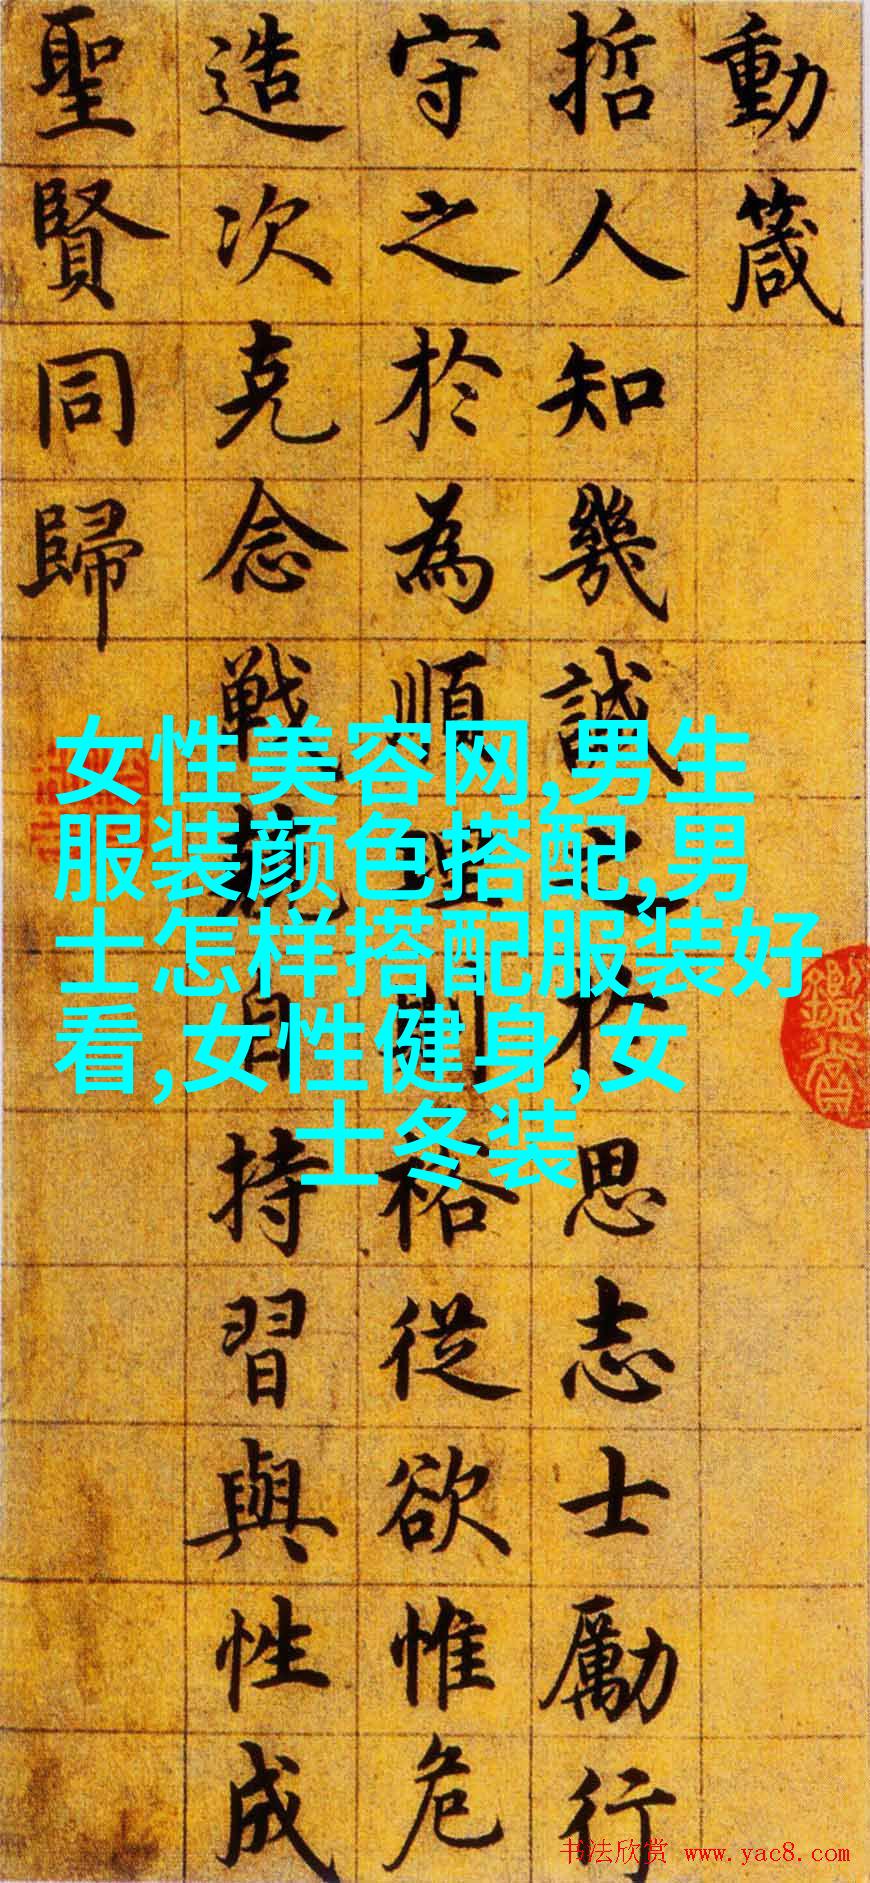 動箴
哲人知幾誠之於思志士勵行
守之於為順理則裕從欲惟危
造次克念戰兢自持習與性成
聖賢同歸
女性美容网,男生
服装颜色搭配,男
士怎样搭配服装好
看,女性健身,女
士冬装
书法欣赏 www.yac8.com